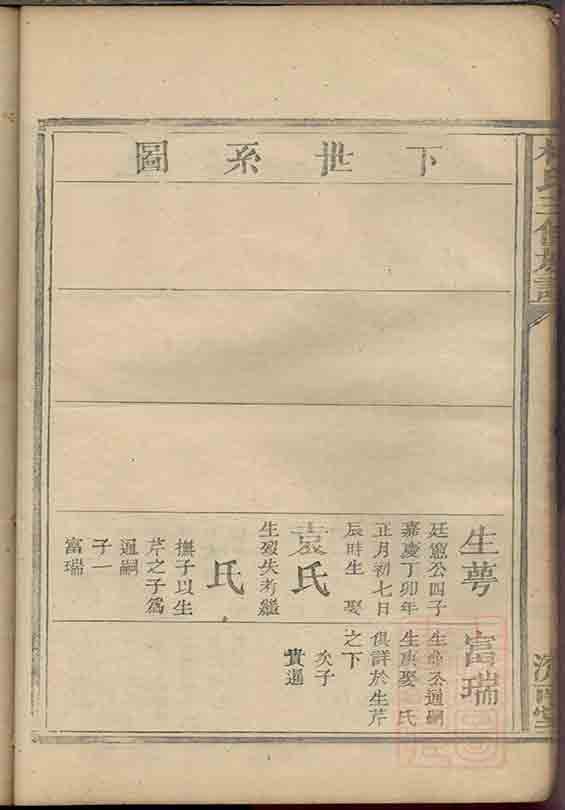 下世系圖
生萼
廷寵公四子
嘉慶丁卯年
正月初七日
辰時生 娶
袁氏
生歿失考繼
氏
撫子以生
芹之子為
通嗣
子一
富瑞
富瑞
生萼公通嗣
生庚娶 氏
俱詳於生芹
之下
次子
貴通
氏三修族譜
濟南堂